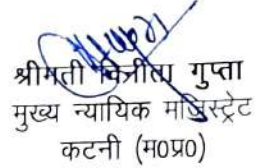 श्रीमती विनीता गुप्ता
मुख्य न्यायिक मजिस्ट्रेट
कटनी (म0प्र0)